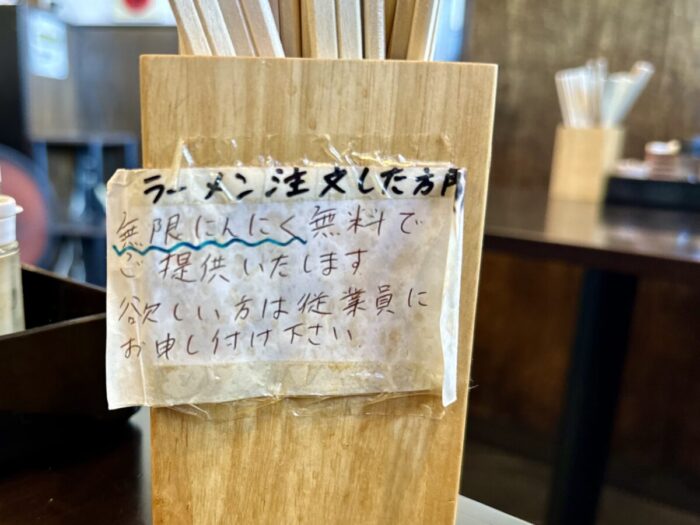 ラーメン注文した方限
無限にんにく無料で
ご提供いたします
欲しい方は従業員に
お申し付け下さい